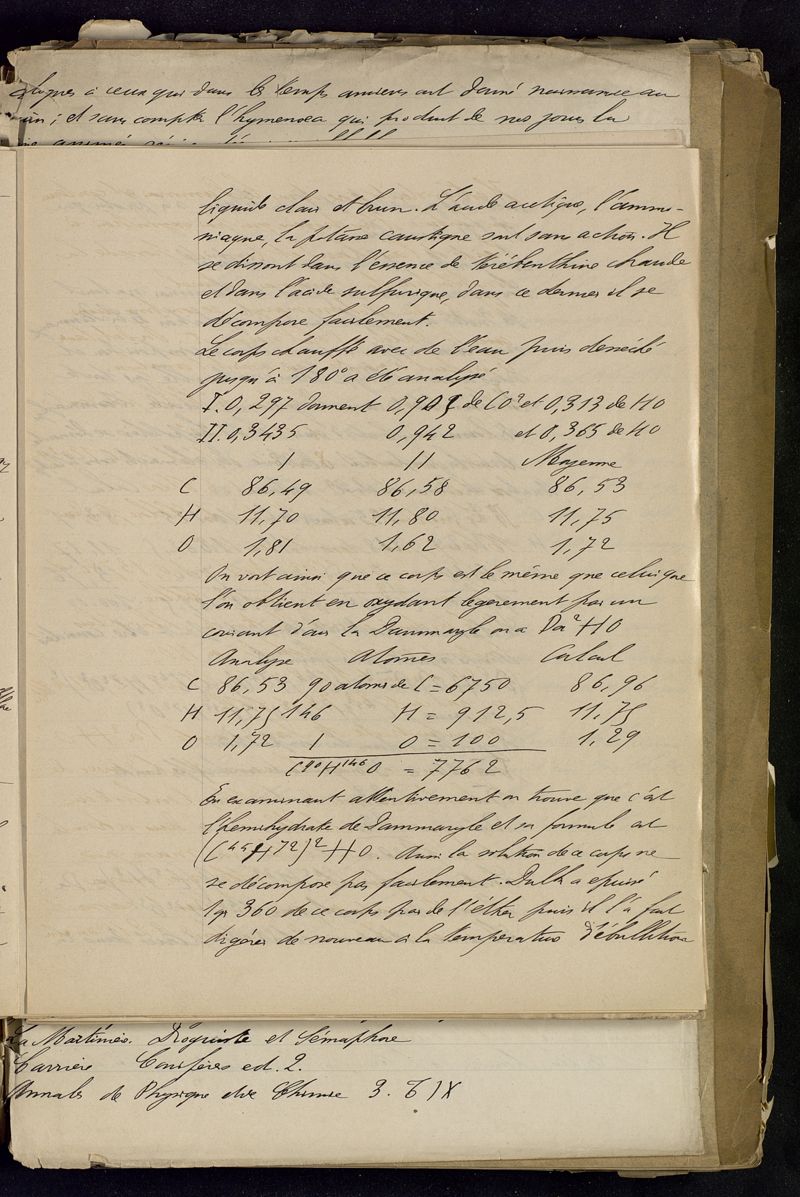 à ceux qui dans les temps anciens ont donné naissance au
; et sans compter l'hymenoea qui produit de nos jours la
liquide clair et brun. L'acide acétique, l'ammo-
niaque, la potasse caustique sont sans action. Il
se dissout dans l'essence de térébenthine chaude
et dans l'acide sulfurique, dans ce dernier il se
décompose facilement.
Le corps chauffé avec de l'eau puis desséché
jusqu'à 180° a été analysé
I. 0,297 donnent de CO² et 0,313 de HO
II. 0,3435 0,942 et 0,365 de HO
I II Moyenne
C 86,49 86,58 86,53
H 11,70 11,80 11,75
O 1,81 1,62 1,72
On voit ainsi que ce corps est le même que celui que
l'on obtient en oxydant légèrement par un
courant d'air la Dammaryle on a Da²HO
Analyse Atomes Calcul
C 86,53 90 atomes de C = 6750 86,96
H 11,75 146 H = 912,5 11,75
O 1,72 1 O = 100 1,29
C⁹⁰H¹⁴⁶O = 7762
En examinant attentivement on trouve que c'est
l'hemihydrate de Dammaryle et sa formule est
(C⁴⁵H⁷²)²HO. Aussi la solution de ce corps ne
se décompose pas facilement. Dulk a épuisé
1gr 360 de ce corps par de l'éther puis il l'a fait
digérer de nouveau à la température d'ébullition
La Martinière. Droguiste et Sémaphore
Carrière Conifères ed. 2.
Annales de Physique et de Chimie 3. T IX